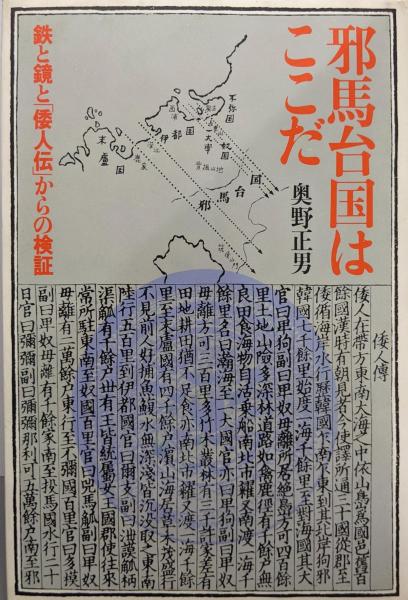 邪馬台国は
ここだ
奥野正男
鉄と鏡と「倭人伝」からの検証
不弥国
奴国
一大率
伊都国
末盧国
邪馬台国
倭人傳
倭人在帶方東南大海之中依山㠀爲國邑舊百
餘國漢時有朝見者今使譯所通三十國從郡至
倭循海岸水行歷韓國乍南乍東到其北岸狗邪
韓國七千餘里始度一海千餘里至對海國其大
官曰卑狗副曰卑奴毋離所居絶㠀方可四百餘
里土地山險多深林道路如禽鹿徑有千餘户無
良田食海物自活乗船南北市糴又南渡一海千
餘里名曰瀚海至一大國官亦曰卑狗副曰卑奴
毋離方可三百里多竹木叢林有三千許家差有
田地耕田猶不足食亦南北市糴又渡一海千餘
里至末盧國有四千餘户濵山海居草木茂盛行
不見前人好捕魚鰒水無深淺皆沉没取之東南
陸行五百里到伊都國官曰爾支副曰泄謨觚柄
渠觚有千餘户丗有王皆統屬女王國郡使往來
常所駐東南至奴國百里官曰兕馬觚副曰卑奴
毋離有二萬餘户東行至不彌國百里官曰多模
副曰卑奴毋離有千餘家南至投馬國水行二十
日官曰彌彌副曰彌彌那利可五萬餘户南至邪